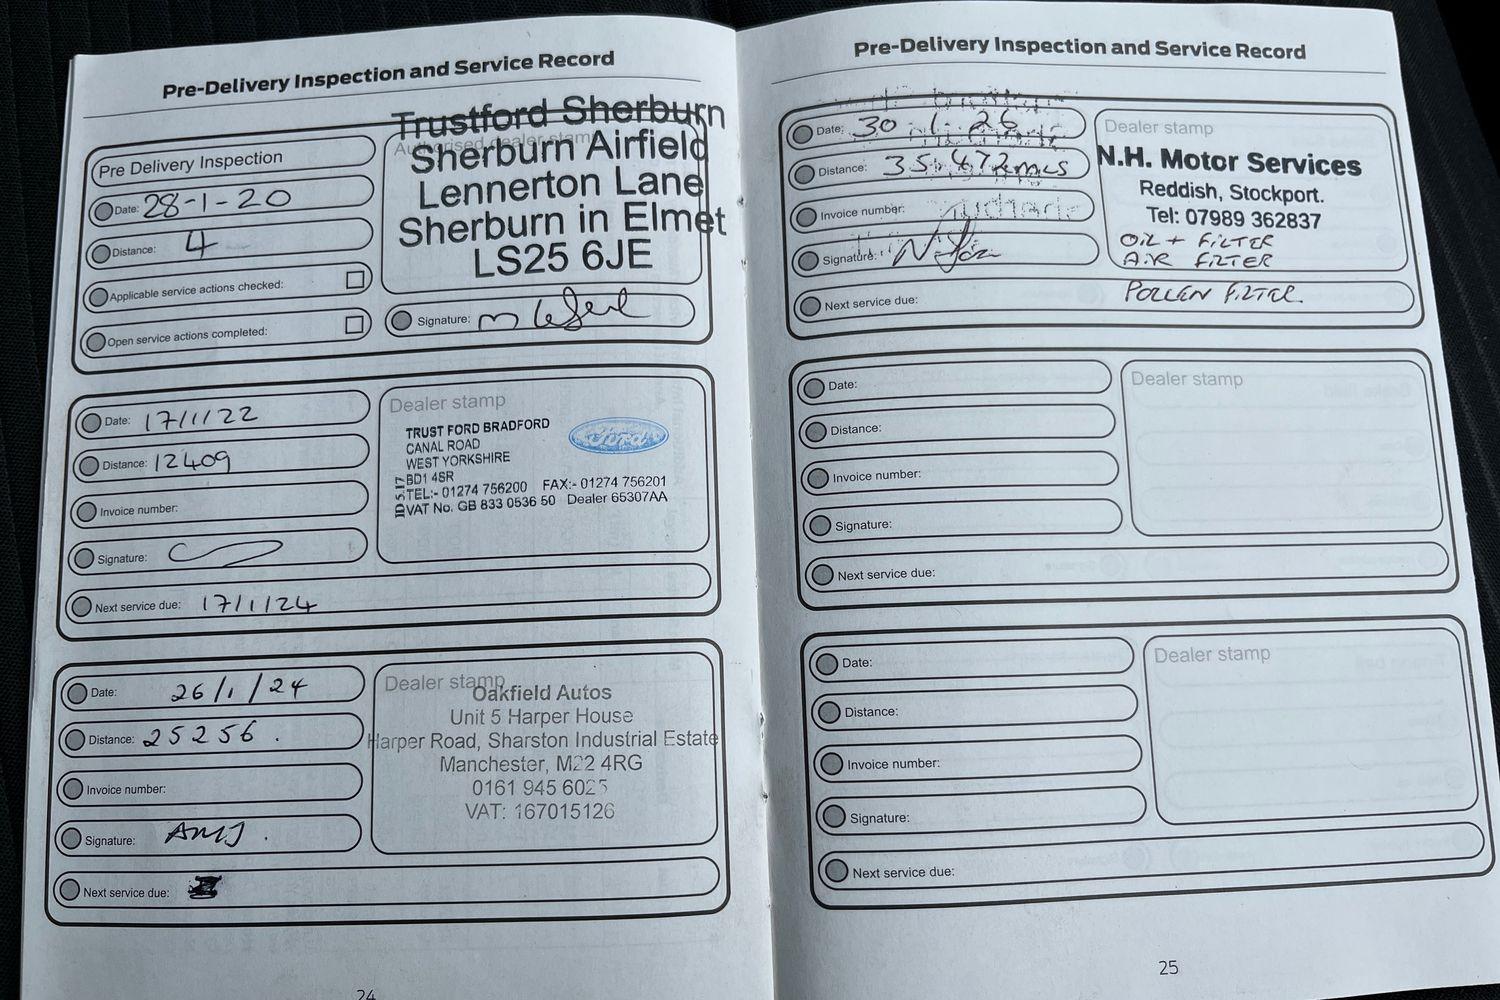 Pre-Delivery Inspection and Service Record
Pre Delivery Inspection
Date: 28-1-20
Distance: 4
Applicable service actions checked:
Open service actions completed:
Authorised dealer stamp
Trustford Sherburn
Sherburn Airfield
Lennerton Lane
Sherburn in Elmet
LS25 6JE
Signature:
Date: 17/1/22
Distance: 12409
Invoice number:
Signature:
Next service due: 17/1/24
Dealer stamp
TRUST FORD BRADFORD
CANAL ROAD
WEST YORKSHIRE
BD1 4SR
TEL:- 01274 756200 FAX:- 01274 756201
VAT No. GB 833 0536 50 Dealer 65307AA
Ford
Date: 26/1/24
Distance: 25256.
Invoice number:
Signature:
Next service due:
Dealer stamp
Oakfield Autos
Unit 5 Harper House
Harper Road, Sharston Industrial Estate
Manchester, M22 4RG
0161 945 6025
VAT: 167015126
24
Pre-Delivery Inspection and Service Record
Date: 30.1.26
Distance: 35,472 mls
Invoice number:
Signature:
Next service due:
Dealer stamp
N.H. Motor Services
Reddish, Stockport.
Tel: 07989 362837
OIL + FILTER
AIR FILTER
POLLEN FILTER.
Date:
Distance:
Invoice number:
Signature:
Next service due:
Dealer stamp
Date:
Distance:
Invoice number:
Signature:
Next service due:
Dealer stamp
25